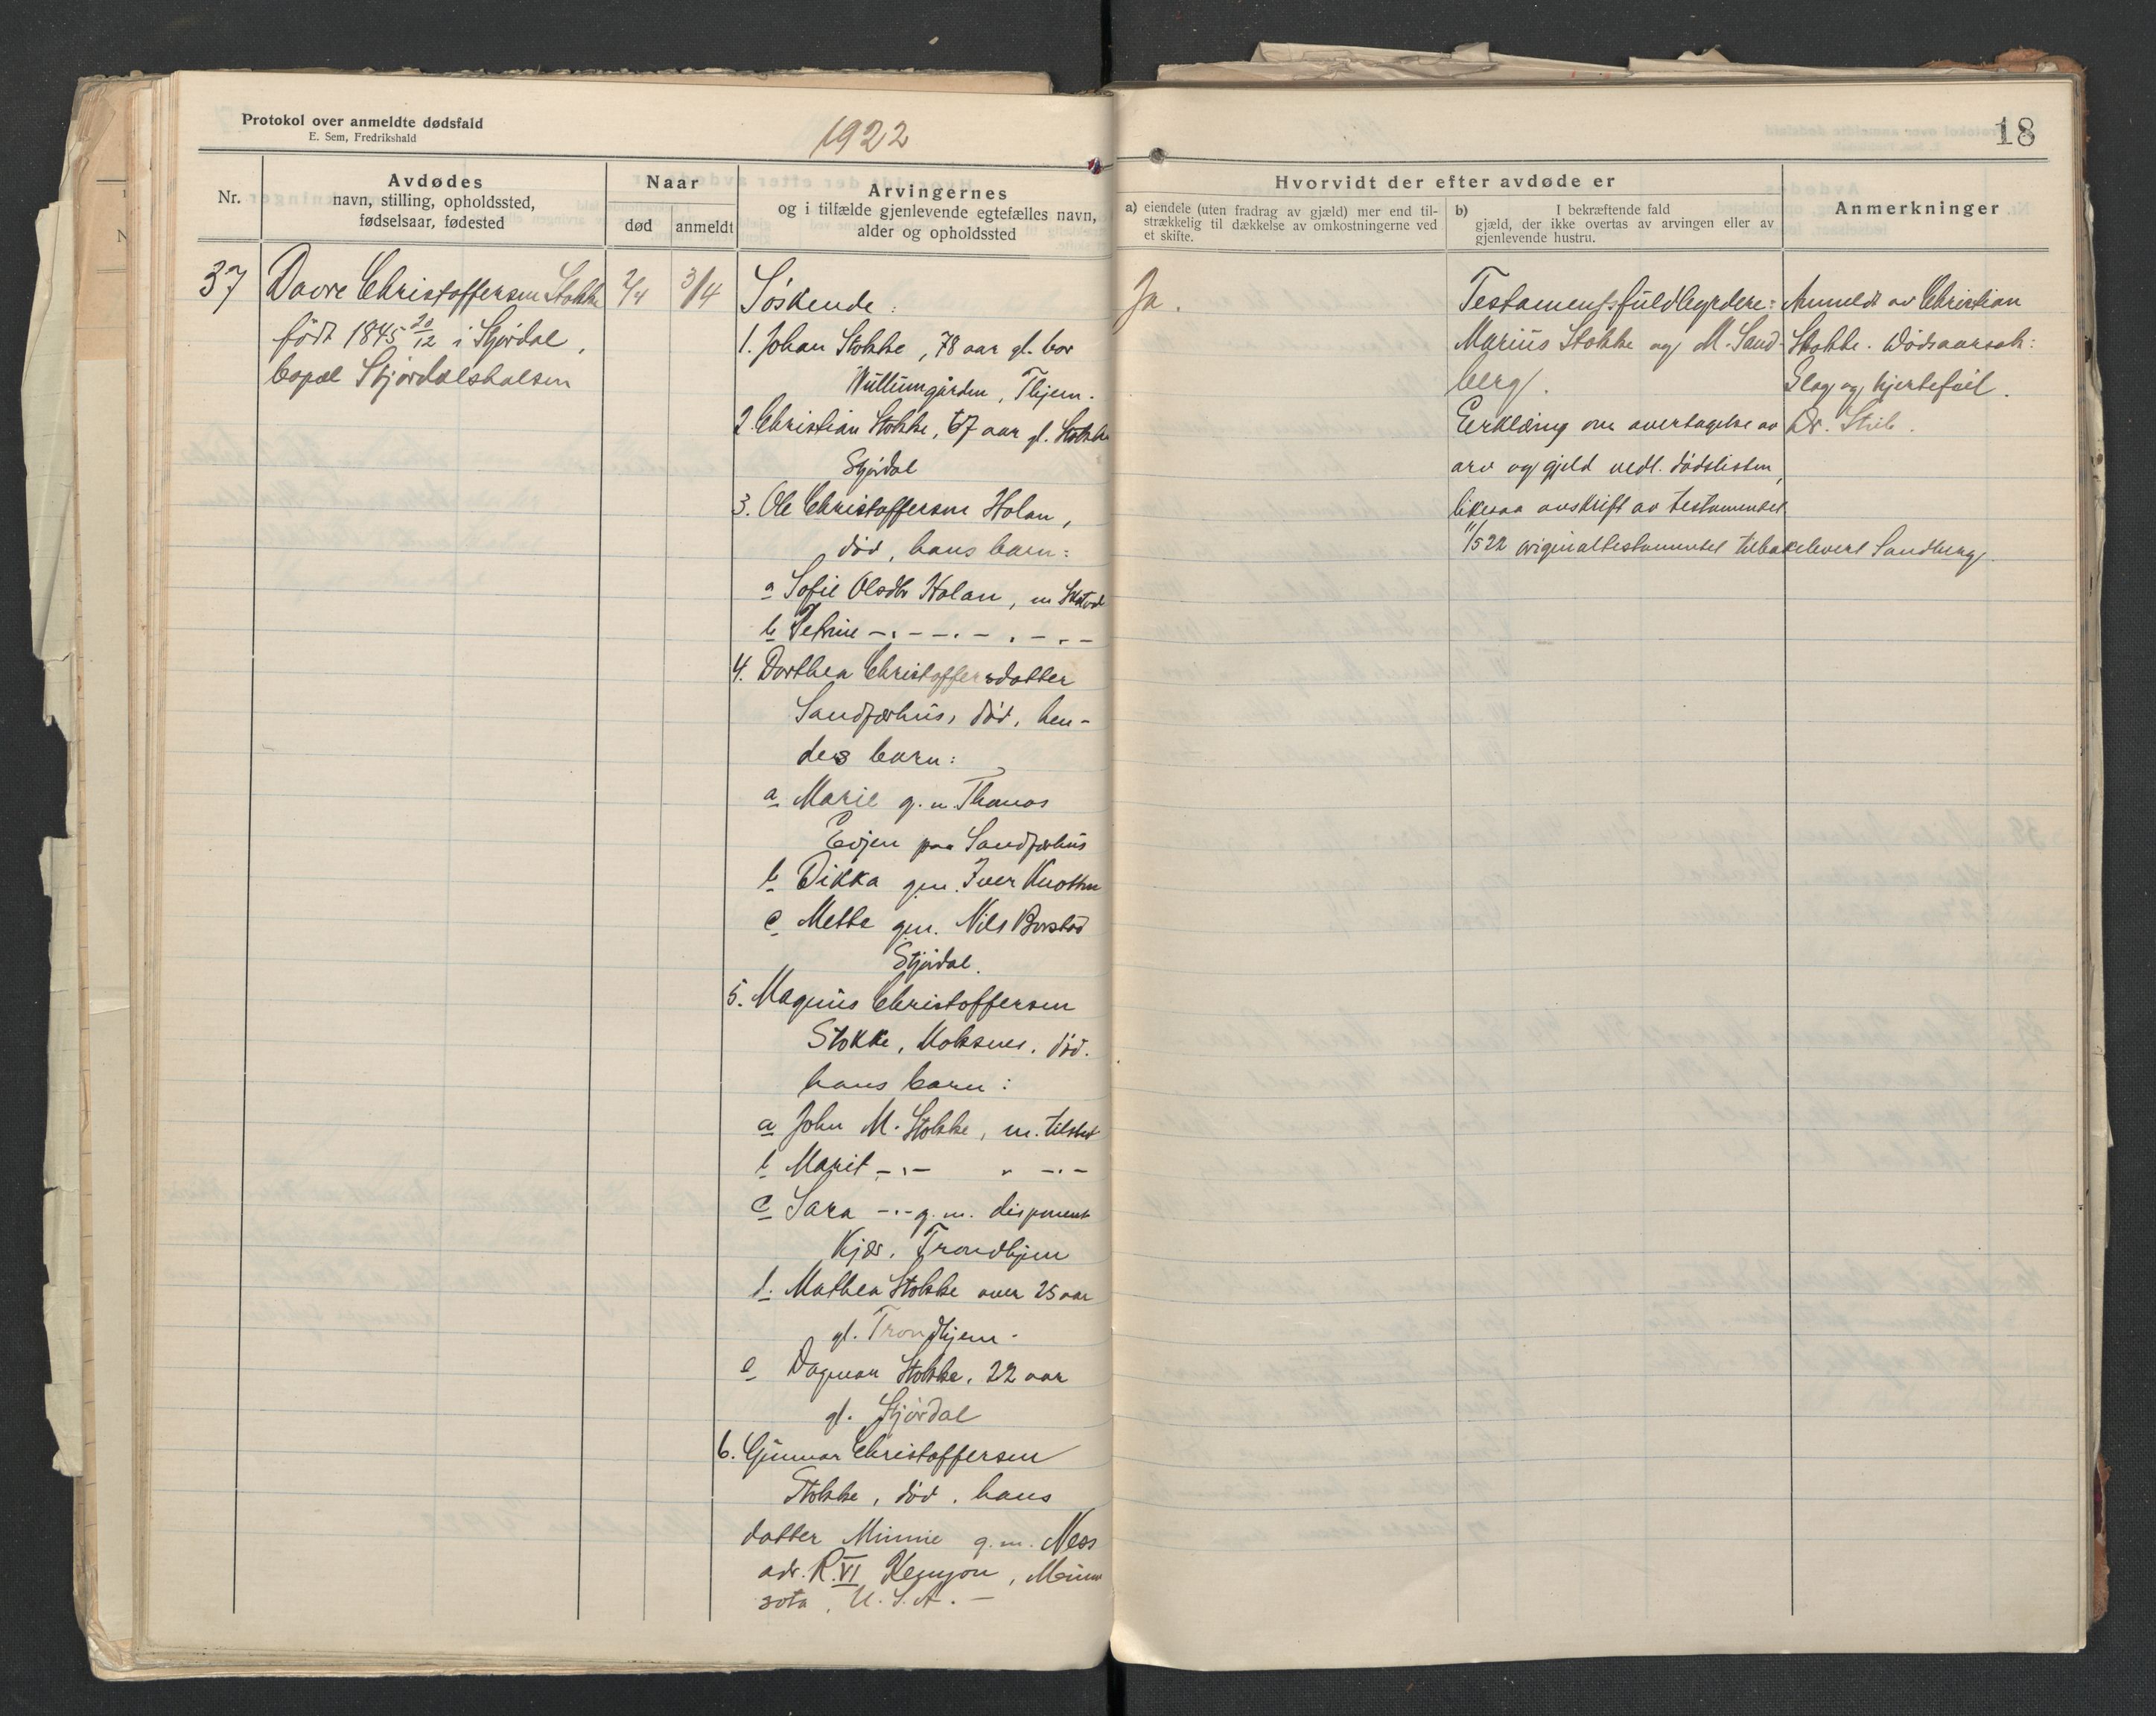 Protokol over anmeldte dødsfald
E. Sem, Fredrikshald
1922
18
Nr.
Avdødes
navn, stilling, opholdssted,
fødselsaar, fødested
Naar
død
anmeldt
Arvingernes
og i tilfælde gjenlevende egtefælles navn,
alder og opholdssted
Hvorvidt der efter avdøde er
a) eiendele (uten fradrag av gjæld) mer end til-
strækkelig til dækkelse av omkostningerne ved
et skifte.
b) I bekræftende fald
gjæld, der ikke overtas av arvingen eller av
gjenlevende hustru.
Anmerkninger
37
Davre Christoffersen Stokke
født 1845 20/12 i Stjørdal,
bopæl Stjørdalshalsen
2/4
3/4
Søskende:
1. Johan Stokke, 78 aar gl. bor
Wullumgården, Thjem.
2. Christian Stokke, 67 aar gl. Stokke
Stjørdal
3. Ole Christoffersen Holan,
død, hans barn:
a Sofie Olsdtr Holan, m
b Petrine -.- -.- .-.-
4. Dorthea Christoffersdatter
Sandferhus, død, hen-
des barn:
a Marie g.m. Thomas
Evjen paa Sandferhus
b Dikka gm. Iver Knotten
c Mette gm. Nils Borstad
Stjørdal.
5. Magnus Christoffersen
Stokke, Moksnes, død.
hans barn:
a John M. Stokke, m. tilsted
b Marit -.- " -.-
c Sara -.- g.m. disponent
Kjær, Trondhjem
d. Mathea Stokke over 25 aar
gl. Trondhjem.
e Dagmar Stokke, 22 aar
gl. Stjørdal
6. Gunnar Christoffersen
Stokke, død, hans
datter Minnie g.m. Ness
adr. R. VI Kenyon, Minne
sota, U.S.A. -
Ja.
Testamentsfuldbyrdere:
Marius Stokke og M. Sand-
berg.
Erklæring om overtagelse av
arv og gjeld vedl. dødslisten,
likesaa avskrift av testamentet
11/5 22 originaltestamentet tilbakelevert Sandberg.
Anmeldt av Christian
Stokke. Dødsaarsak:
Slag og hjertefeil.
Dr.